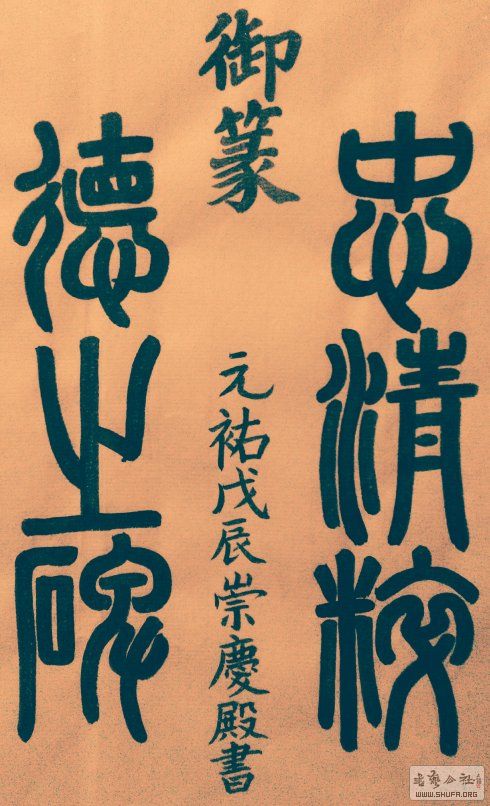 忠清粹
御篆
元祐戊辰崇慶殿書
德之碑
WWW.SHUFA.ORG